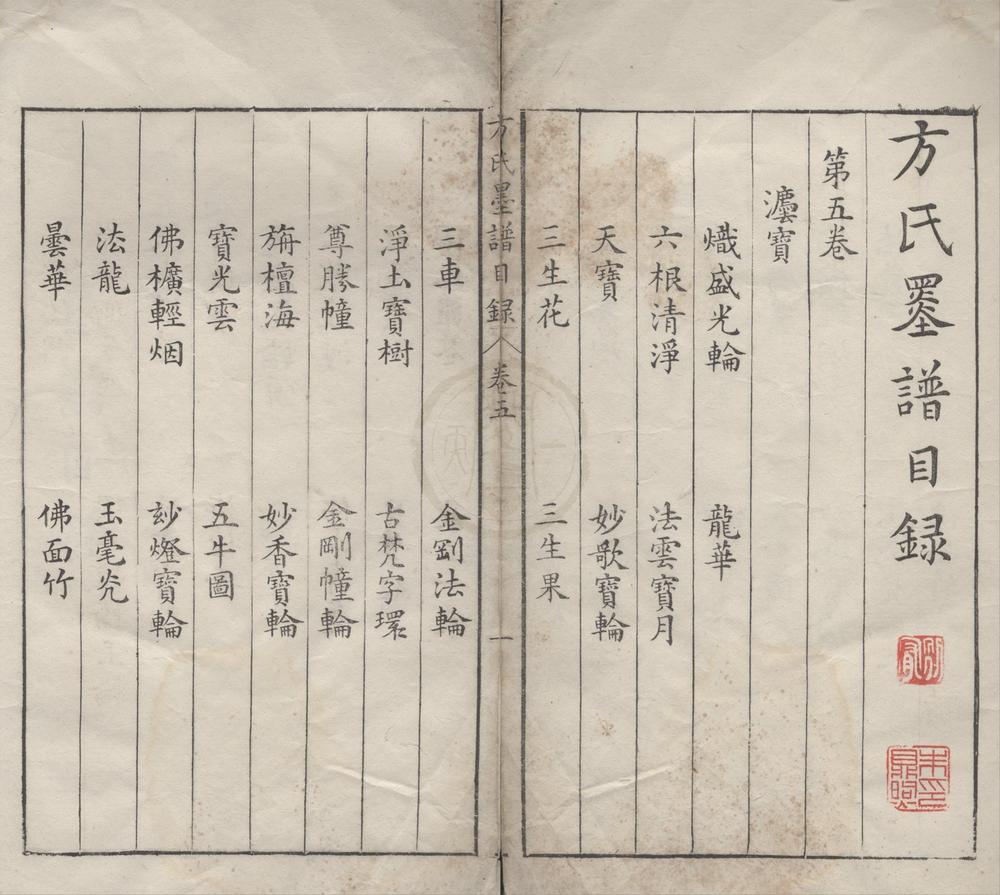 方氏墨譜目録
別宥
朱鼎煦印
第五卷
灋寶
熾盛光輪 龍華
六根清淨 法雲寶月
天寶 妙歌寶輪
三生花 三生果
方氏墨譜目録 卷五 一
三車 金剛法輪
淨土寶樹 古梵字環
尊勝幢 金剛幢輪
旃檀海 妙香寶輪
寶光雲 五牛圖
佛櫎輕烟 玅燈寶輪
法龍 玉毫光
曇華 佛面竹